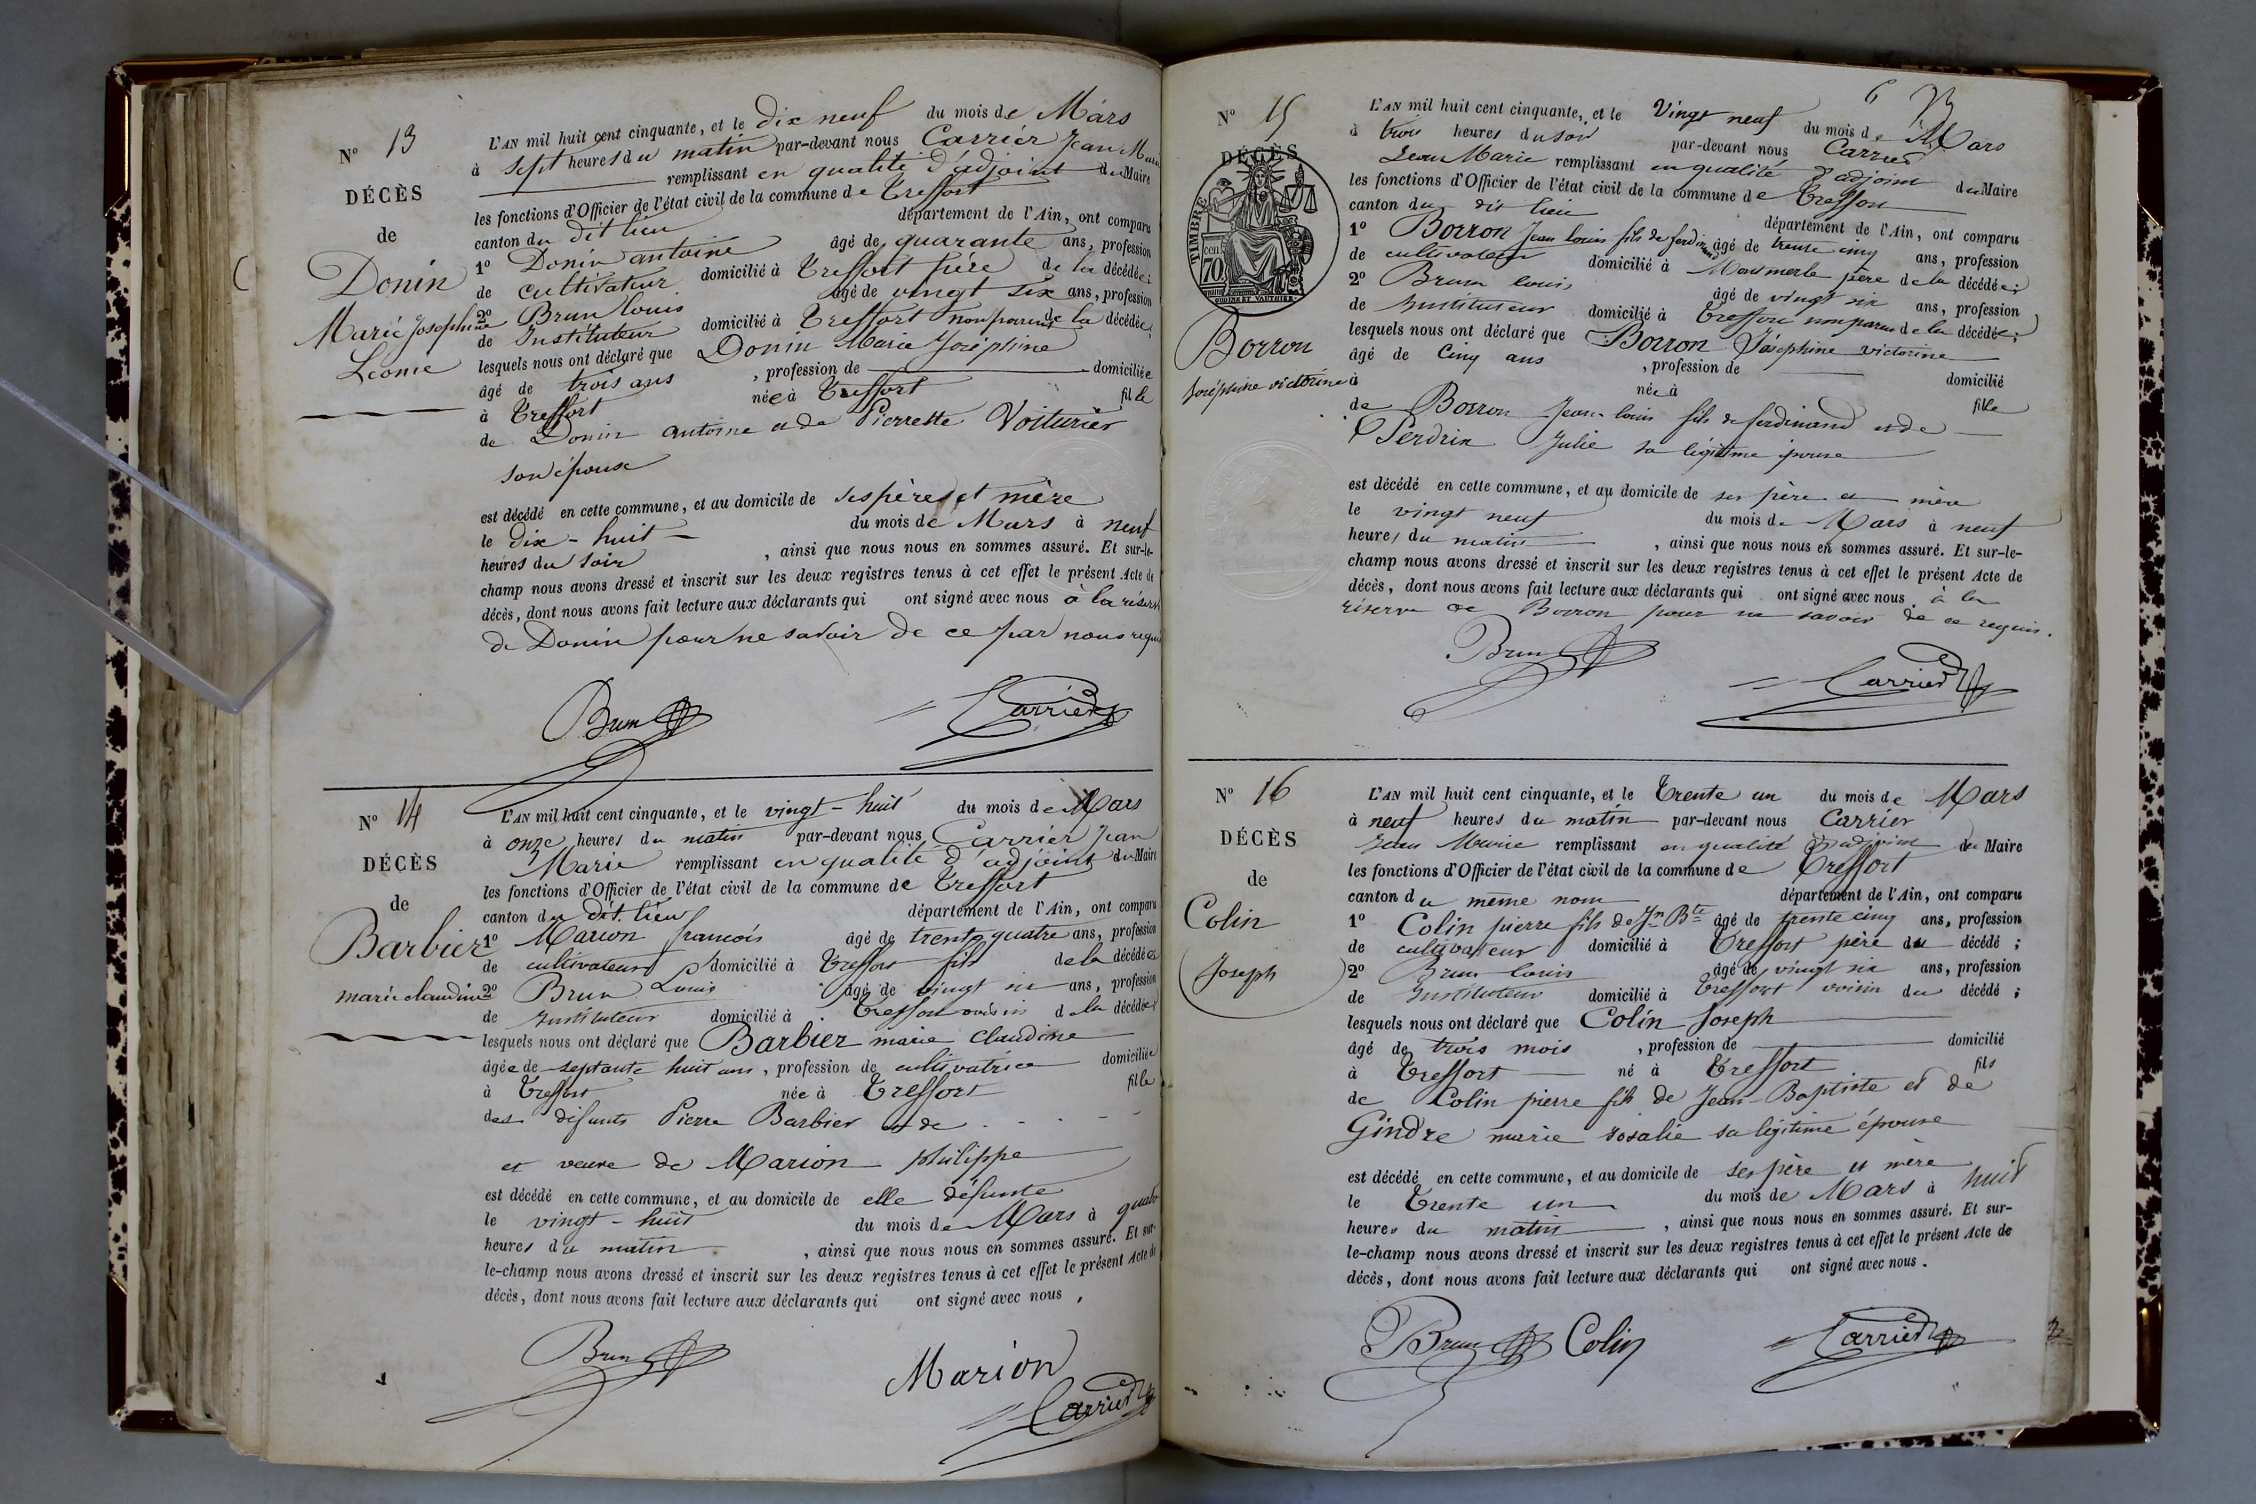 N° 13
DÉCÈS
de
Donin
Marie Josephine
Leonie
L'AN mil huit cent cinquante, et le dix neuf du mois de Mars
à sept heures du matin par-devant nous Carrier Jean Marie
remplissant en qualité d'adjoint du Maire
les fonctions d'Officier de l'état civil de la commune de Treffort
canton du dit lieu département de l'Ain, ont comparu
1° Donin antoine âgé de quarante ans, profession
de cultivateur domicilié à Treffort père de la décédée;
2° Brun louis âgé de vingt six ans, profession
de Instituteur domicilié à Treffort non parent de la décédée;
lesquels nous ont déclaré que Donin Marie Joséphine
âgé de trois ans, profession de domiciliée
à Treffort née à Treffort fille
de Donin antoine et de Pierrette Voiturier
son épouse
est décédé en cette commune, et au domicile de ses père et mère
le dix-huit du mois de Mars à neuf
heures du soir, ainsi que nous nous en sommes assuré. Et sur-le-
champ nous avons dressé et inscrit sur les deux registres tenus à cet effet le présent Acte de
décès, dont nous avons fait lecture aux déclarants qui ont signé avec nous à la réserve
de Donin pour ne savoir de ce par nous requis
Brun Carrier
N° 14
DÉCÈS
de
Barbier
marie claudine
L'AN mil huit cent cinquante, et le vingt-huit du mois de Mars
à onze heures du matin par-devant nous Carrier Jean
Marie remplissant en qualité d'adjoint du Maire
les fonctions d'Officier de l'état civil de la commune de Treffort
canton du dit lieu département de l'Ain, ont comparu
1° Marion françois âgé de trente quatre ans, profession
de cultivateur domicilié à Treffort fils de la décédée
2° Brun Louis âgé de vingt six ans, profession
de Instituteur domicilié à Treffort voisin de la décédée;
lesquels nous ont déclaré que Barbier marie claudine
âgée de septante huit ans, profession de cultivatrice domiciliée
à Treffort née à Treffort fille
des défunts Pierre Barbier et de
et veuve de Marion philippe
est décédé en cette commune, et au domicile de elle défunte
le vingt-huit du mois de Mars à quatre
heures du matin, ainsi que nous nous en sommes assuré. Et sur-
le-champ nous avons dressé et inscrit sur les deux registres tenus à cet effet le présent Acte de
décès, dont nous avons fait lecture aux déclarants qui ont signé avec nous,
Brun Marion
Carrier
6
N° 15
DÉCÈS
TIMBRE
70
Borron
Joséphine victorine
L'AN mil huit cent cinquante, et le Vingt neuf du mois de Mars
à trois heures du soir par-devant nous Carrier
Jean Marie remplissant en qualité d'adjoint du Maire
les fonctions d'Officier de l'état civil de la commune de Treffort
canton du dit lieu département de l'Ain, ont comparu
1° Borron Jean louis fils de ferdinand âgé de trente cinq ans, profession
de cultivateur domicilié à Monmerle père de la décédée;
2° Brun louis âgé de vingt six ans, profession
de Instituteur domicilié à Treffort non parent de la décédée;
lesquels nous ont déclaré que Borron Joséphine victorine
âgé de Cinq ans, profession de domicilié
à née à fille
de Borron Jean-louis fils de ferdinand et de
Perdrix Julie sa légitime épouse
est décédé en cette commune, et au domicile de ses père et mère
le vingt neuf du mois de Mars à neuf
heures du matin, ainsi que nous nous en sommes assuré. Et sur-le-
champ nous avons dressé et inscrit sur les deux registres tenus à cet effet le présent Acte de
décès, dont nous avons fait lecture aux déclarants qui ont signé avec nous, à la
réserve de Borron pour ne savoir de ce requis.
Brun Carrier
N° 16
DÉCÈS
de
Colin
Joseph
L'AN mil huit cent cinquante, et le Trente un du mois de Mars
à neuf heures du matin par-devant nous Carrier
Jean Marie remplissant en qualité d'adjoint du Maire
les fonctions d'Officier de l'état civil de la commune de Treffort
canton du même nom département de l'Ain, ont comparu
1° Colin pierre fils de Jn Bte âgé de trente cinq ans, profession
de cultivateur domicilié à Treffort père du décédé;
2° Brun louis âgé de vingt six ans, profession
de Instituteur domicilié à Treffort voisin du décédé;
lesquels nous ont déclaré que Colin Joseph
âgé de trois mois, profession de domicilié
à Treffort né à Treffort fils
de Colin pierre fils de Jean-Baptiste et de
Gindre marie rosalie sa légitime épouse
est décédé en cette commune, et au domicile de ses père et mère
le Trente un du mois de Mars à huit
heures du matin, ainsi que nous nous en sommes assuré. Et sur-
le-champ nous avons dressé et inscrit sur les deux registres tenus à cet effet le présent Acte de
décès, dont nous avons fait lecture aux déclarants qui ont signé avec nous.
Brun Colin Carrier